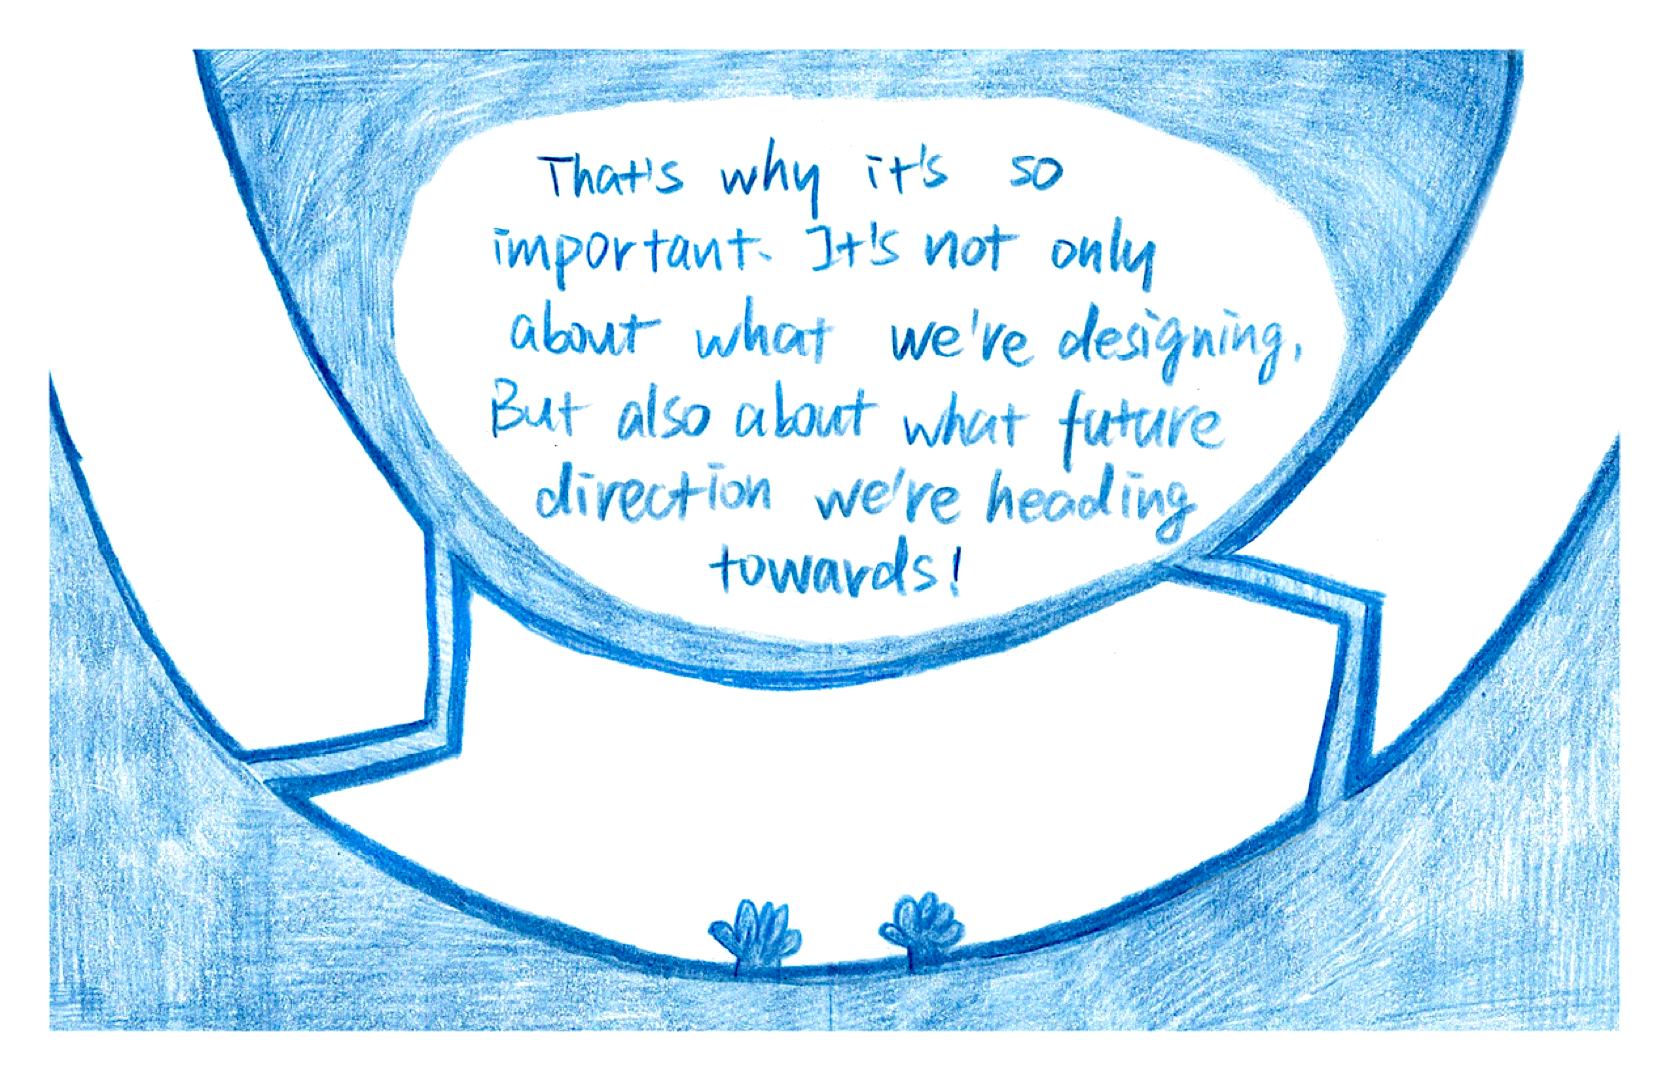 That's why it's so
important. It's not only
about what we're designing,
But also about what future
direction we're heading
towards!